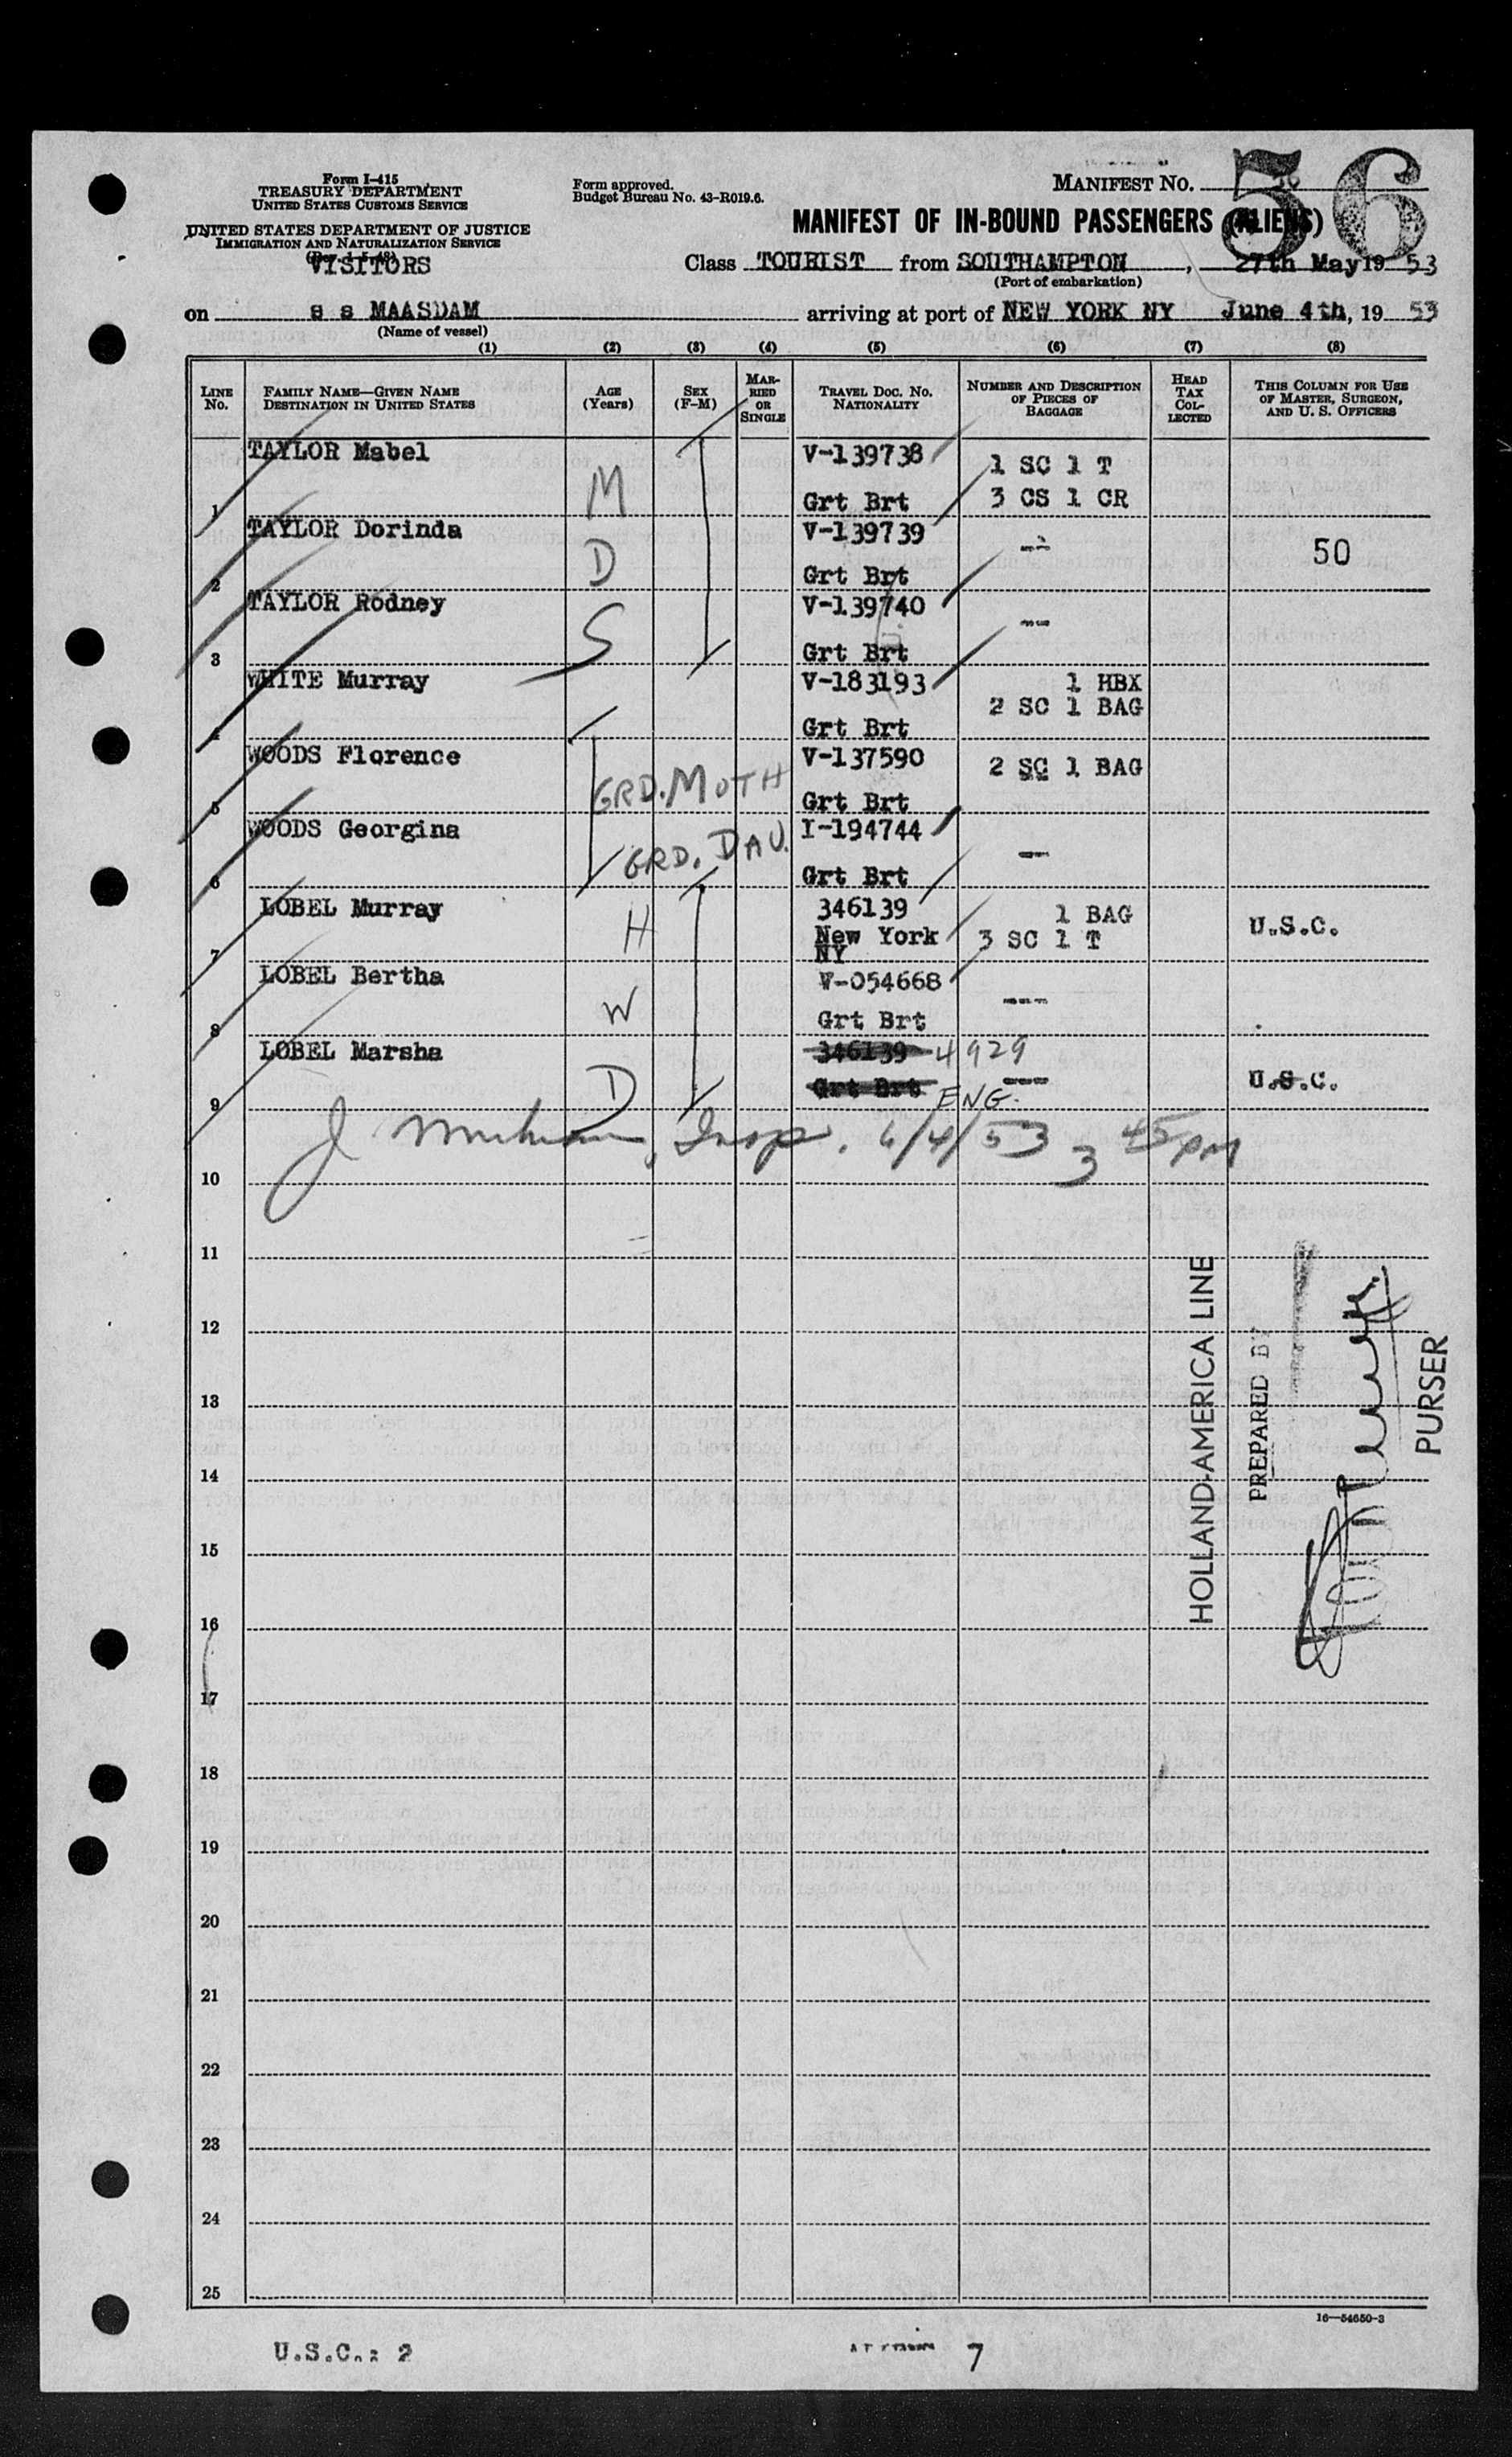 Form I-415
TREASURY DEPARTMENT
UNITED STATES CUSTOMS SERVICE
UNITED STATES DEPARTMENT OF JUSTICE
IMMIGRATION AND NATURALIZATION SERVICE
VISITORS
Form approved.
Budget Bureau No. 43-R019.6.
MANIFEST NO.
56
MANIFEST OF IN-BOUND PASSENGERS (ALIENS)
Class TOURIST from SOUTHAMPTON, 27th May 19 53
(Port of embarkation)
on s s MAASDAM arriving at port of NEW YORK NY June 4th, 19 53
(Name of vessel)
(1) (2) (3) (4) (5) (6) (7) (8)
LINE NO. FAMILY NAME—GIVEN NAME DESTINATION IN UNITED STATES AGE (Years) SEX (F-M) MARRIED OR SINGLE TRAVEL DOC. NO. NATIONALITY NUMBER AND DESCRIPTION OF PIECES OF BAGGAGE HEAD TAX COLLECTED THIS COLUMN FOR USE OF MASTER, SURGEON, AND U. S. OFFICERS
TAYLOR Mabel V-139738 1 SC 1 T
1 M Grt Brt 3 CS 1 CR
TAYLOR Dorinda V-139739 --
2 D Grt Brt 50
TAYLOR Rodney V-139740 --
3 S Grt Brt
WHITE Murray V-183193 1 HBX
2 SC 1 BAG
4 Grt Brt
WOODS Florence V-137590 2 SC 1 BAG
5 GRD. MOTH Grt Brt
WOODS Georgina I-194744 --
6 GRD. DAU. Grt Brt
LOBEL Murray H 346139 1 BAG U.S.C.
7 New York NY 3 SC 1 T
LOBEL Bertha V-054668 ---
8 W Grt Brt
LOBEL Marsha 346139 4929 ---
9 D Grt Brt ENG. U.S.C.
Insp. 6/4/53 3 45 PM
10
11
12
13
14
15
16
17
18
19
20
21
22
23
24
25
HOLLAND-AMERICA LINE
PREPARED BY
PURSER
16—54650-3
U.S.C.: 2
7